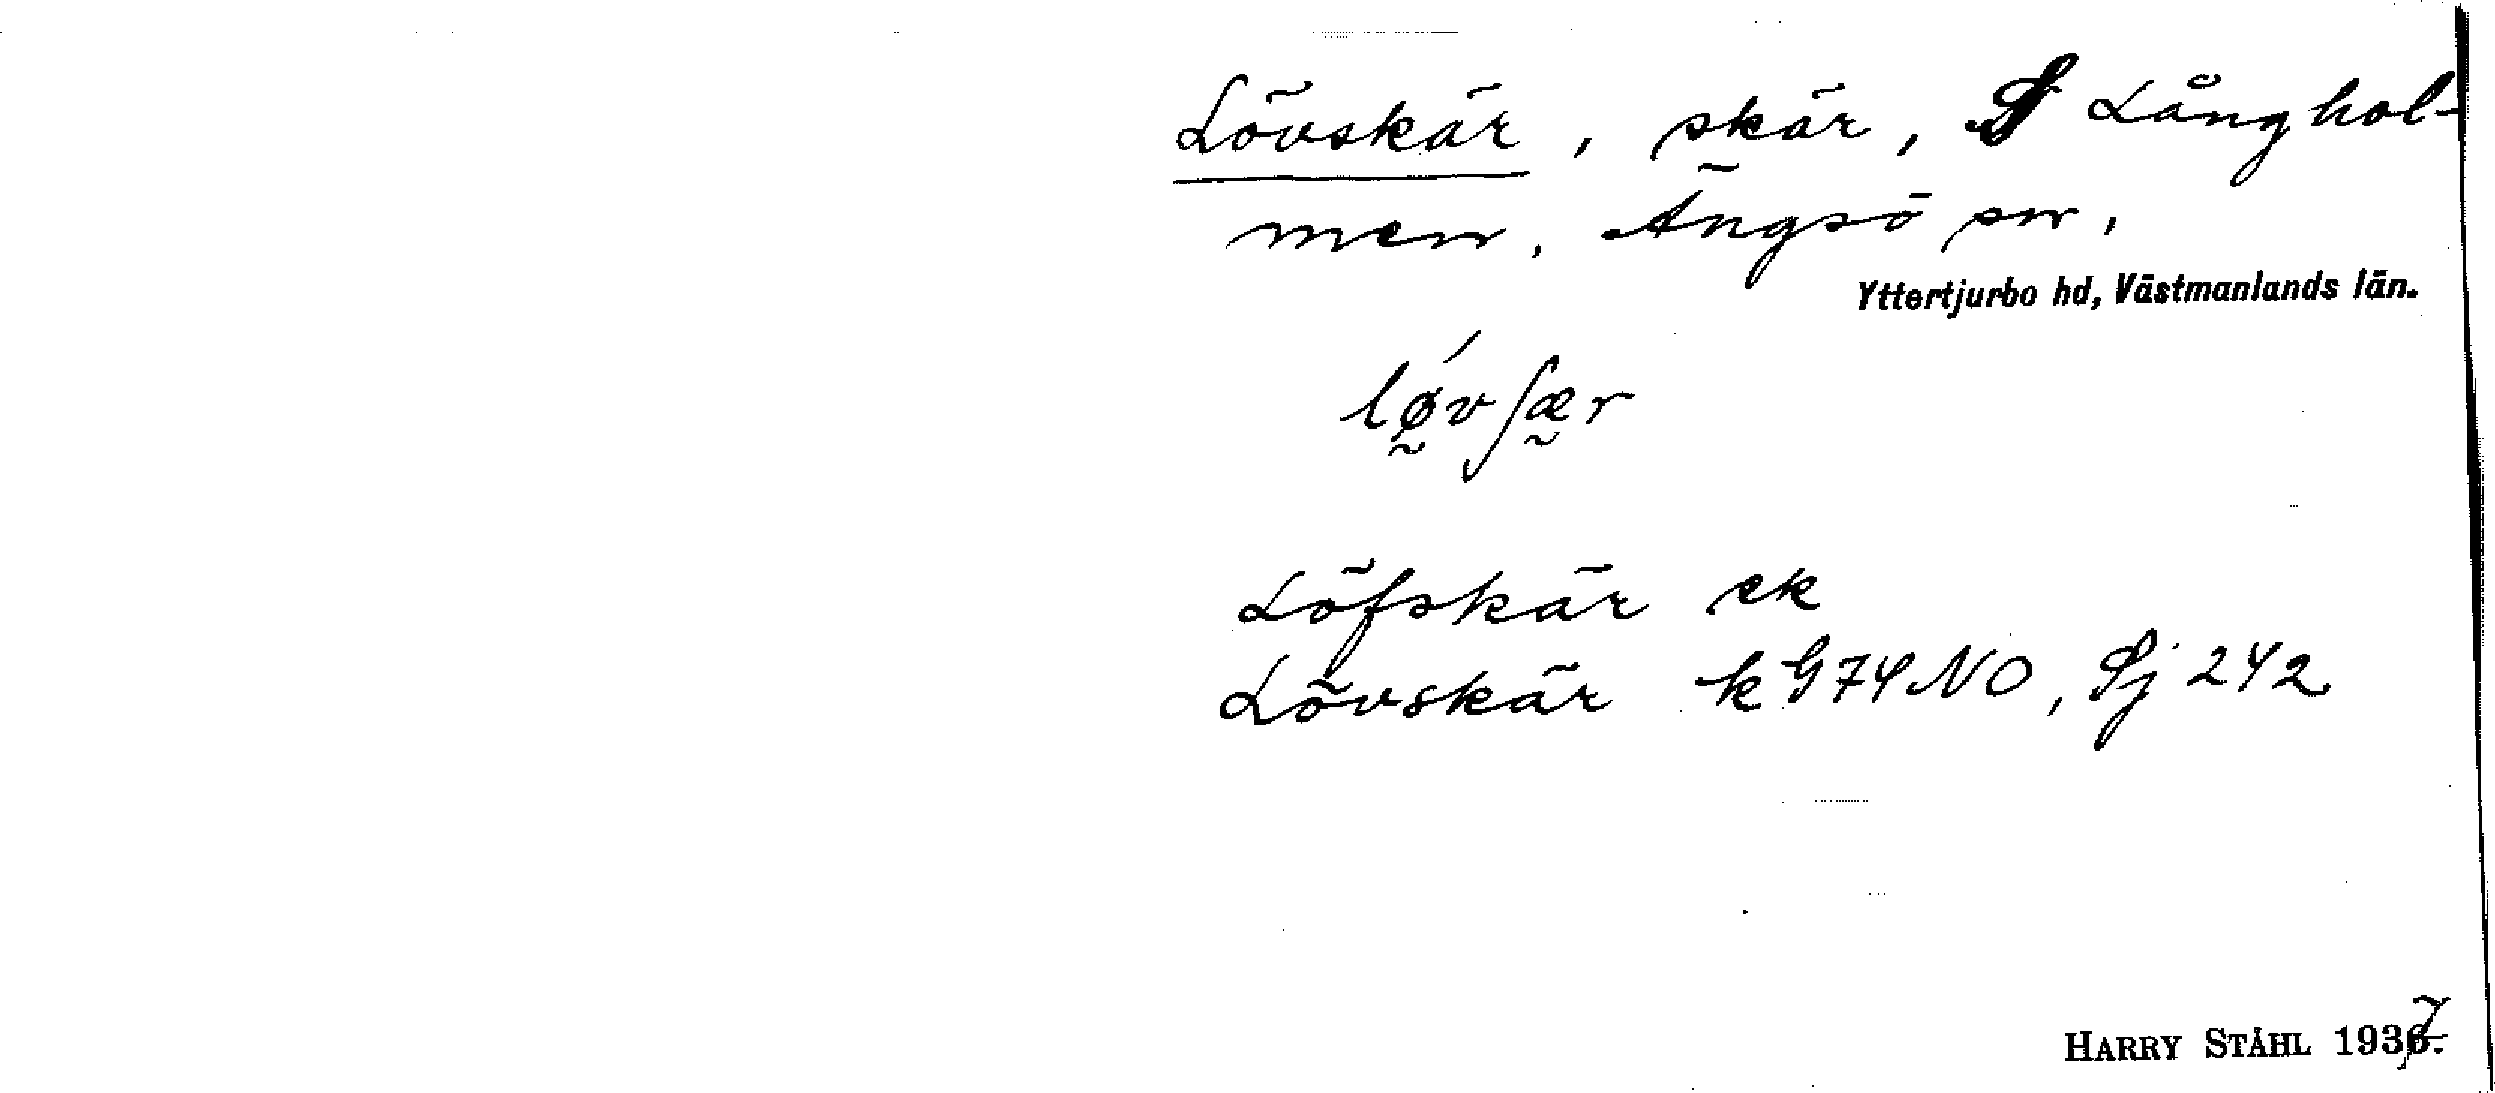 Lövskär, skär, S Långhol-
men. Ängsö sn,
Yttertjurbo hd, Västmanlands län.
lǿvʃær
Löfskär ek
Lövskär k G 74 NO, Sj 242
HARRY STÅHL 1937.